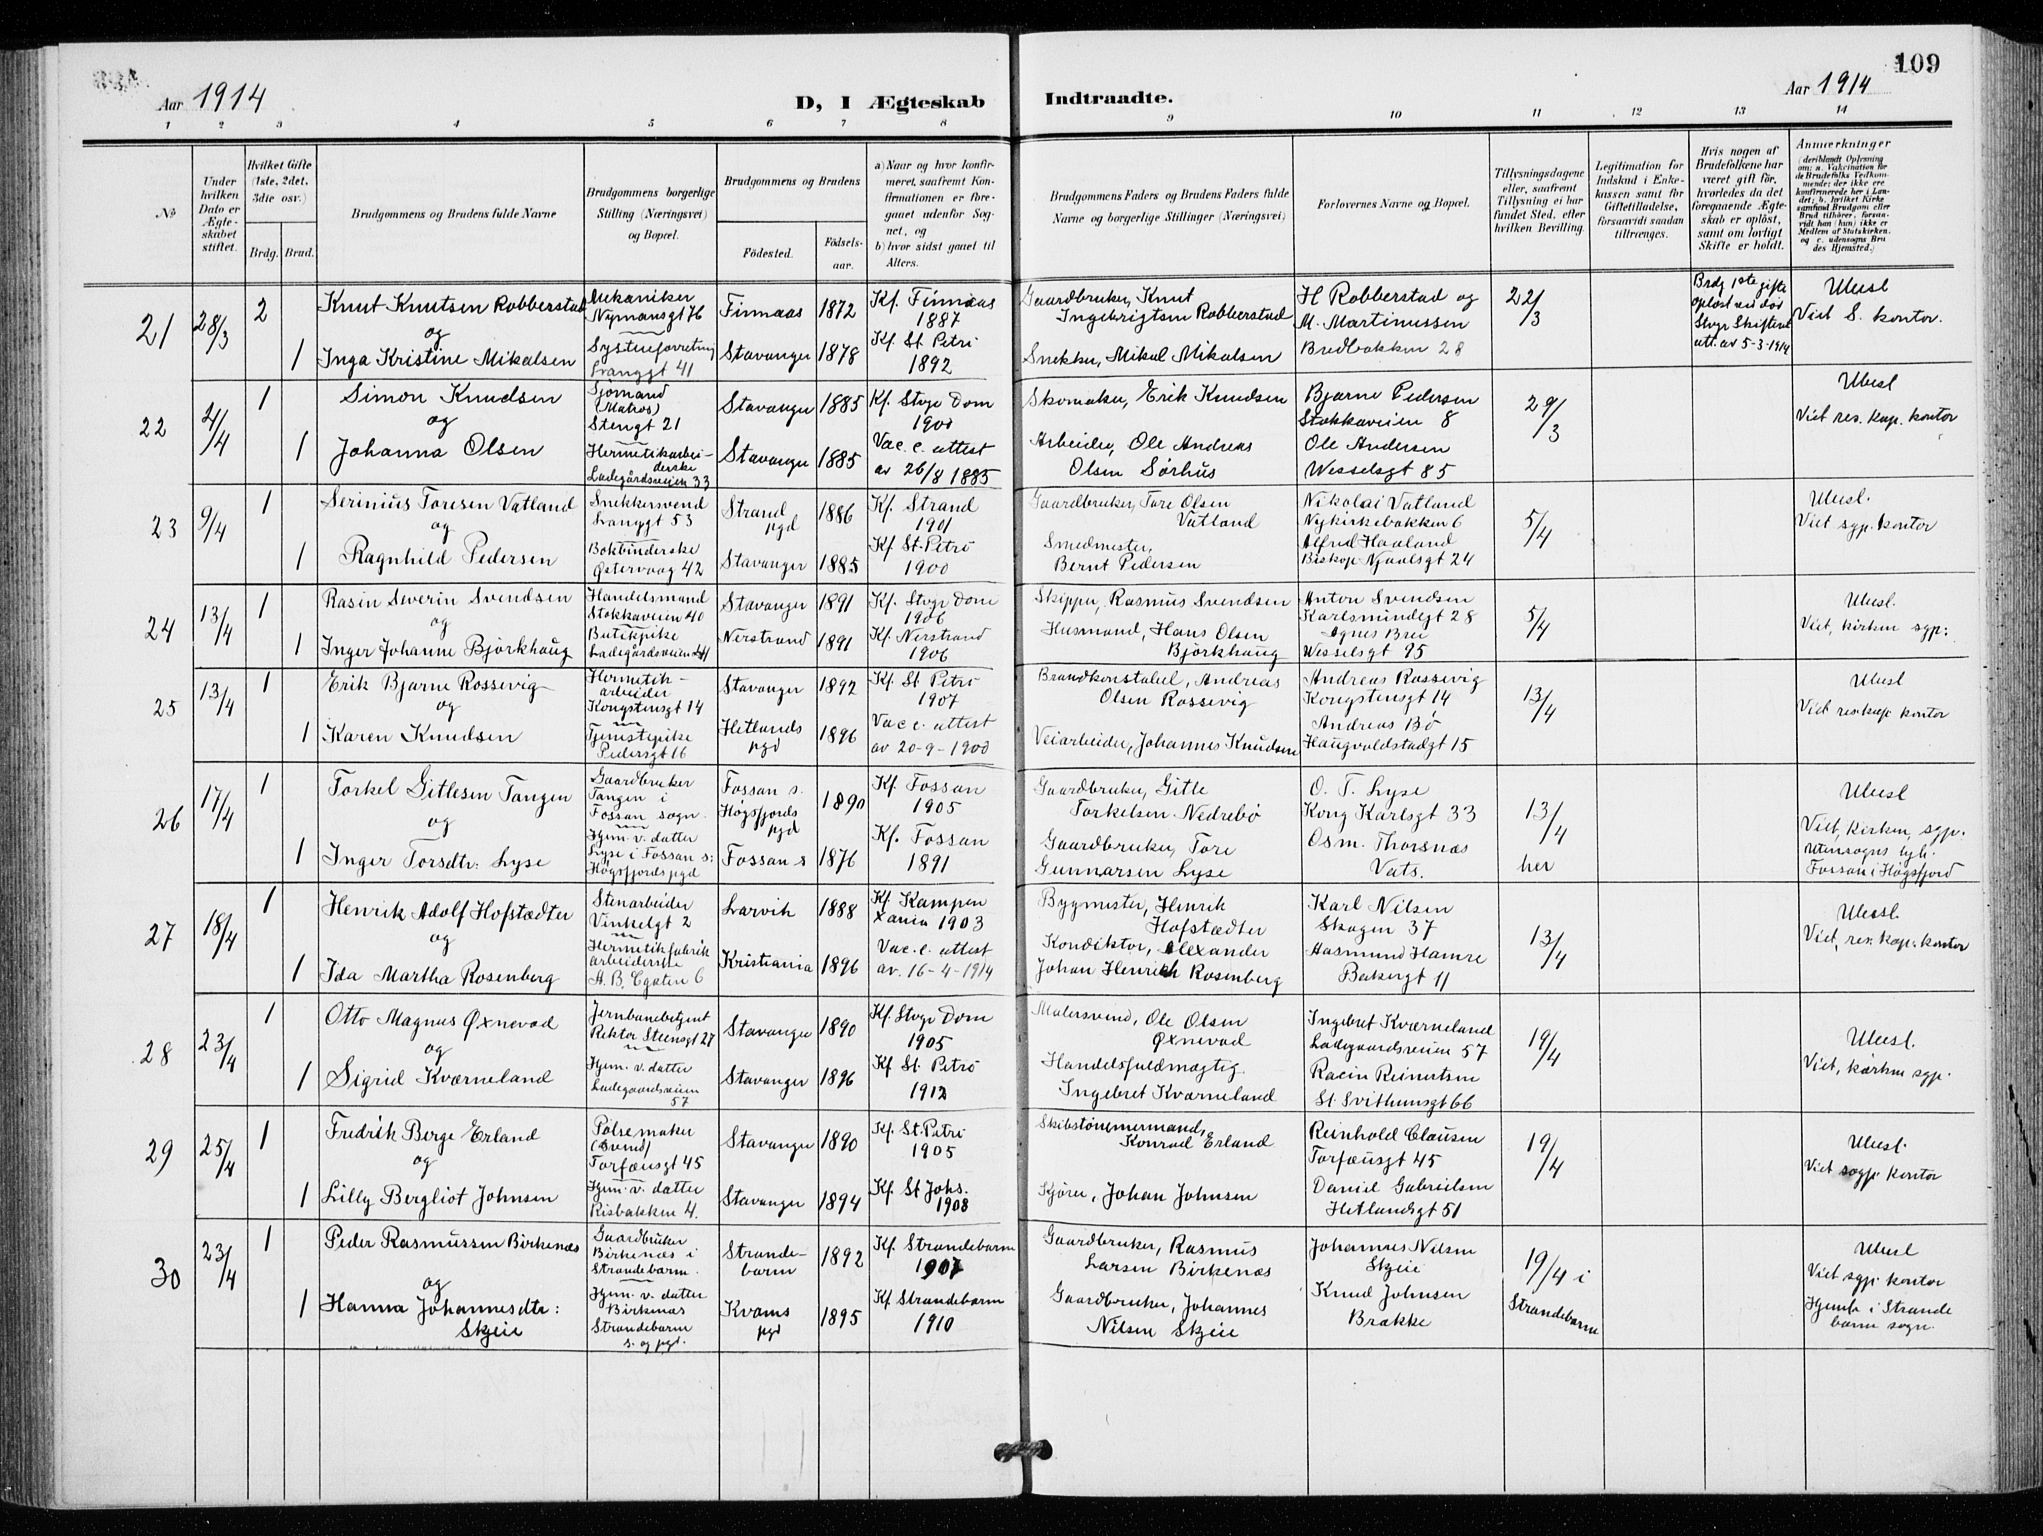 109
Aar 1914
D, I Ægteskab Indtraadte.
Aar 1914
1 2 3 4 5 6 7 8 9 10 11 12 13 14
№
Under hvilken Dato er Ægteskabet stiftet.
Hvilket Gifte (1ste, 2det, 3die osv.)
Brdg. Brud.
Brudgommens og Brudens fulde Navne
Brudgommens borgerlige Stilling (Næringsvei) og Bopæl.
Brudgommens og Brudens
Fødested.
Fødselsaar.
a) Naar og hvor konfirmeret, saafremt Konfirmationen er foregaaet udenfor Sognet, og
b) hvor sidst gaaet til Alters.
Brudgommens Faders og Brudens Faders fulde Navne og borgerlige Stillinger (Næringsvei)
Forlovernes Navne og Bopæl.
Tillysningsdagene eller, saafremt Tillysning ei har fundet Sted, efter hvilken Bevilling.
Legitimation for Indskud i Enkekassen samt for Giftetilladelse, forsaavidt saadan tiltrænges.
Hvis nogen af Brudefolkene har været gift før, hvorledes da det foregaaende Ægteskab er opløst, samt om lovligt Skifte er holdt.
Anmerkninger
(deriblandt Oplysning om: a. Vaccination for de Brudefolks Vedkommende, der ikke ere konfirmerede her i Landet; b. hvilket Kirkesamfund Brudgom eller Brud tilhører, forsaavidt han (hun) ikke er Medlem af Statskirken, og c. udensogns Brudes Hjemsted.)
21
28/3
2
Knut Knutsen Robberstad
og
1
Inga Kristine Mikalsen
Mekaniker
Nymansgt 76
Systueforretning
Langgt 41
Finnaas 1872
Stavanger 1878
Kf. Finnaas
1887
Kf. St. Petri
1892
Gaardbruker, Knut
Ingebrigtsen Robberstad
Snekker, Mikal Mikalsen
H Robberstad og
M. Martinussen
Bredbakken 28
22/3
Brdg 1ste gifte
opløst ved død
Stvgr Skifteret
att. av 5-3-1914
Viet S. kontor.
22
4/4
1
Simon Knudsen
og
1
Johanna Olsen
Sjømand
(Matros)
Stengt 21
Hermetikarbeiderske
Ladegårdsveien 33
Stavanger 1885
Stavanger 1885
Kf. Stvgr Dom
1900
Vac. c. attest
av 26/8 1885
Skomaker, Erik Knudsen
Arbeider, Ole Andreas
Olsen Sørhus
Bjarne Pedersen
Stokkaveien 8
Ole Andersen
Wesselsgt 85
29/3
Viet res. kap. kontor
23
9/4
1
Serinius Toresen Vatland
og
1
Ragnhild Pedersen
Snekkersvend
Langgt 53
Bokbinderske
Østervaag 42
Strand pgd 1886
Stavanger 1885
Kf. Strand
1901
Kf St. Petri
1900
Gaardbruker, Tore Olsen
Vatland
Smedmester,
Bernt Pedersen
Nikolai Vatland
Nykirkebakken 6
Alfred Haaland
Biskop Njaalsgt 24
5/4
Viet sgp. kontor
24
13/4
1
Rasin Severin Svendsen
og
1
Inger Johanne Bjørkhaug
Handelsmand
Stokkaveien 40
Butikpike
Ladegårdsveien 41
Stavanger 1891
Nerstrand 1891
Kf. Stvgr Dom
1906
Kf. Nerstrand
1906
Skipper, Rasmus Svendsen
Husmand, Hans Olsen
Bjørkhaug
Anton Svendsen
Karlsmindegt 28
Agnes Brei
Wesselsgt 95
5/4
Viet, kirken sgp:
25
13/4
1
Erik Bjarne Rossevig
og
1
Karen Knudsen
Hermetikarbeider
Kongstensgt 14
Tjenestepike
Pedersgt 16
Stavanger 1892
Hetlands pgd 1896
Kf. St Petri
1907
Vac c. attest
av 20-9-1900
Brandkonstabel, Andreas
Olsen Rossevig
Veiarbeider, Johannes Knudsen
Andreas Rossevig
Kongstensgt 14
Andreas Bø
Haugvaldstadgt 15
13/4
Viet res.kap. kontor
26
17/4
1
Torkel Gitlesen Tangen
og
1
Inger Torsdtr: Lyse
Gaardbruker
Tangen i
Fossan sogn.
Hjem. v. datter
Lyse i Fossan s:
Høgsfjords pgd
Fossan s.
Høgsfjords pgd 1890
Fossan s 1876
Kf. Fossan
1905
Kf. Fossan
1891
Gaardbruker, Gitle
Torkelsen Nedrebø
Gaardbruker, Tore
Gunnarsen Lyse
O. T. Lyse
Kong Karlsgt 33
Osm. Thorsnæs
Vats.
13/4
her
Viet, kirken, sgp.
Fossan i Høgsfjord
27
18/4
1
Henrik Adolf Hofstædter
og
1
Ida Martha Rosenberg
Stenarbeider
Vinkelgt 2
Hermetikfabrik
arbeiderske
A. B. Cgaten 6
Larvik 1888
Kristiania 1896
Kf Kampen
Xania 1903
Vac. c. attest
av. 16-4-1914
Bygmester, Henrik
Hofstædter
Konditor, Alexander
Johan Henrich Rosenberg
Karl Nilsen
Skagen 37
Aasmund Hamre
Bakergt 11
13/4
Viet, res. kap. kontor
28
23/4
1
Otto Magnus Øxnevad
og
1
Sigrid Kværneland
Jernbanebetjent
Rektor Steensgt 27
Hjem. v. datter
Ladegaardsveien
57
Stavanger 1890
Stavanger 1896
Kf. Stvgr Dom
1905
Kf St. Petri
1912
Malersvend, Ole Olsen
Øxnevad
Handelsfuldmægtig.
Ingebret Kværneland
Ingebret Kværneland
Ladegaardsveien 57
Racin Reinertsen
St. Svithunsgt 66
19/4
Viet, kirken sgp.
29
25/4
1
Fredrik Berge Erland
og
1
Lilly Bergliot Johnsen
Pølsemaker
(Svend)
Torfæusgt 45
Hjem. v. datter
Risbakken 4.
Stavanger 1890
Stavanger 1894
Kf. St. Petri
1905
Kf. St Johs.
1908
Skibstømmermand,
Konrad Erland
Kjører, Johan Johnsen
Reinhold Clausen
Torfæusgt 45
Daniel Gabrielsen
Hetlandsgt 51
19/4
Viet sogp. kontor
30
23/4
1
Peder Rasmussen Birkenæs
og
1
Hanna Johannesdtr:
Skjeie
Gaardbruker
Birkenæs i
Strandebarm.
Hjem. v. datter
Birkenæs
Strandebarm
s. og pgd.
Strandebarm 1892
Kvams pgd 1895
Kf. Strandebarm
1907
Kf Strandebarm
1910
Gaardbruker, Rasmus
Larsen Birkenæs
Gaardbruker, Johannes
Nilsen Skjeie
Johannes Nilsen
Skjeie
Knud Johnsen
Brække
19/4 i
Strandebarm
Viet sgp. kontor
Hjemh. i Strande
barm sogn.